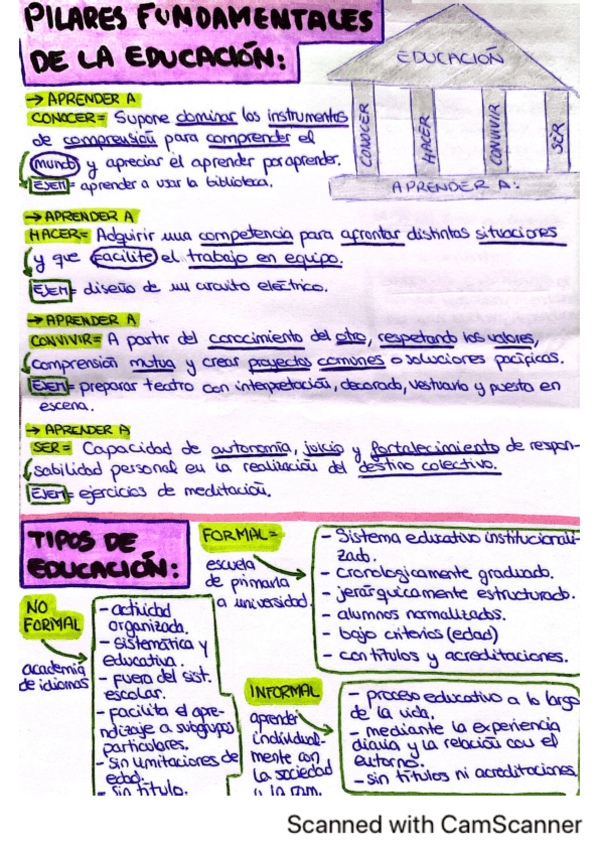 PILARES FUNDAMENTALES
DE LA EDUCACIÓN:
EDUCACIÓN
CONOCER
HACER
CONVIVIR
SER
APRENDER A:
→ APRENDER A
CONOCER= Supone dominar los instrumentos
de comprensión para comprender el
mundo y apreciar el aprender por aprender.
EJEM= aprender a usar la biblioteca.
→ APRENDER A
HACER= Adquirir una competencia para afrontar distintas situaciones
y que facilite el trabajo en equipo.
EJEM= diseño de un circuito eléctrico.
→ APRENDER A
CONVIVIR= A partir del conocimiento del otro, respetando los valores,
comprensión mutua y crear proyectos comunes o soluciones pacíficas.
EJEM= preparar teatro con interpretación, decorado, vestuario y puesta en
escena.
→ APRENDER A
SER= Capacidad de autonomía, juicio y fortalecimiento de respon-
sabilidad personal en la realización del destino colectivo.
EJEM= ejercicios de meditación.
TIPOS DE
EDUCACIÓN:
FORMAL=
escuela
de primaria
a universidad.
- Sistema educativo institucionali-
zado.
- cronologicamente graduado.
- jerárquicamente estructurado.
- alumnos normalizados.
- bajo criterios (edad)
- con títulos y acreditaciones.
NO
FORMAL
academia
de idiomas
- actividad
organizada.
- sistemática y
educativa.
- fuera del sist.
escolar.
- facilita el apre-
ndizaje a subgrupos
particulares.
- Sin limitaciones de
edad.
- Sin título.
INFORMAL
aprender
individual-
mente con
la sociedad
- proceso educativo a lo largo
de la vida.
- mediante la experiencia
diaria y la relación con el
entorno.
- sin títulos ni acreditaciones.
Scanned with CamScanner